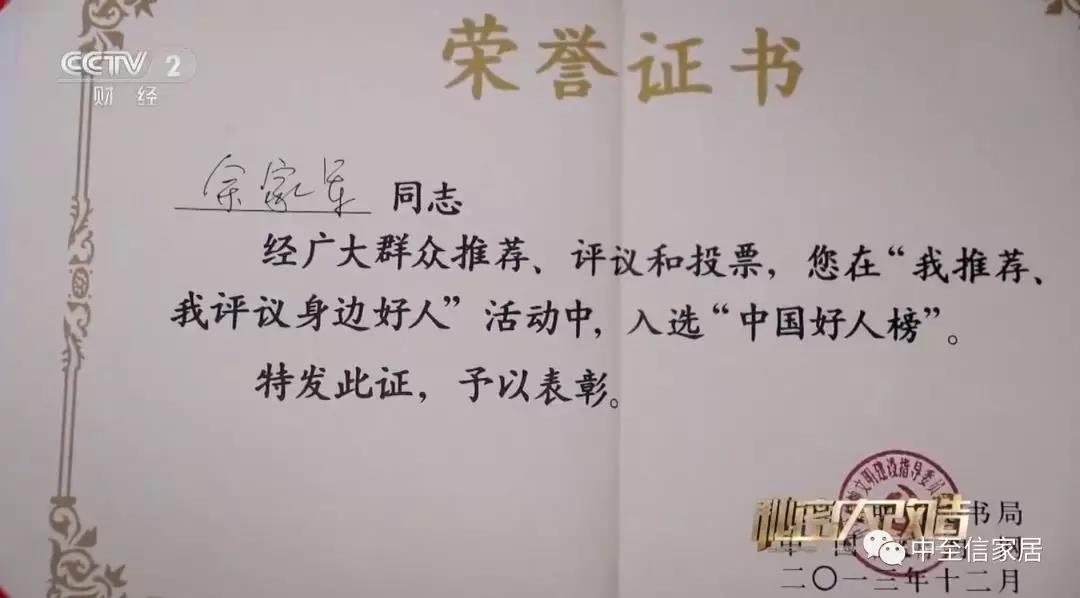 CCTV 2
财经
荣誉证书
余家军 同志
经广大群众推荐、评议和投票，您在“我推荐、
我评议身边好人”活动中，入选“中国好人榜”。
特发此证，予以表彰。
文明建设指导委员
书局
秘密大改造
网
中至信家居
二〇一三年十二月